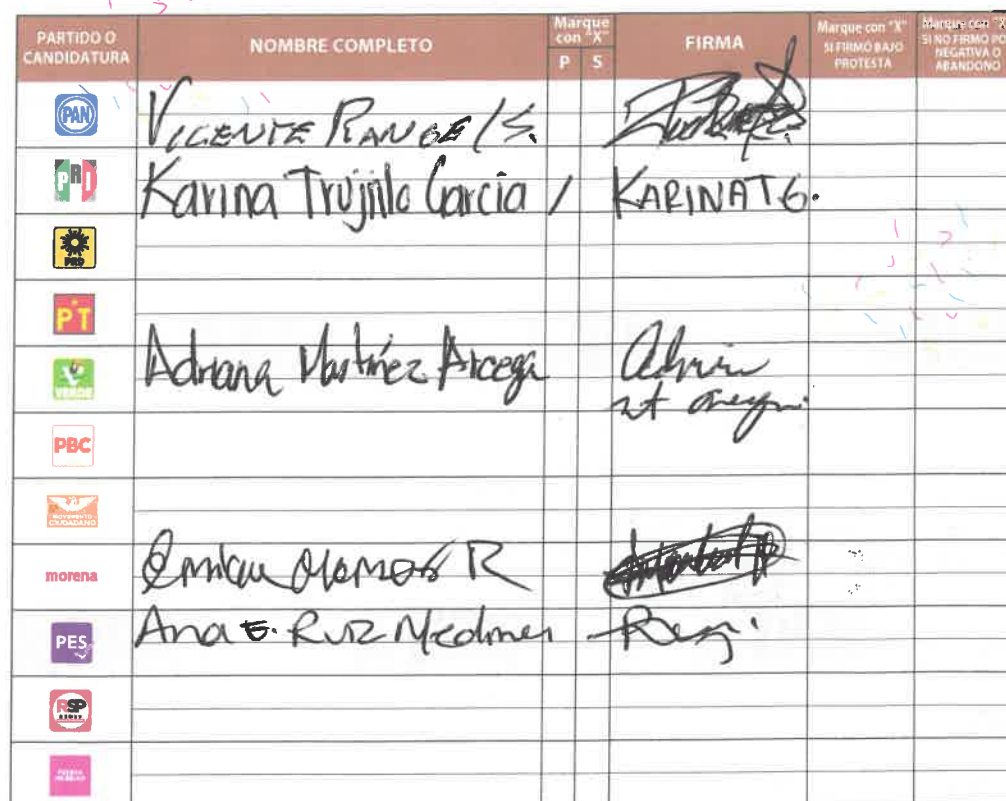 PARTIDO O CANDIDATURA
NOMBRE COMPLETO
Marque con "X"
P S
FIRMA
Marque con "X" SI FIRMÓ BAJO PROTESTA
Marque con "X" SI NO FIRMÓ PO NEGATIVA O ABANDONO
PAN VICENTE RANGEL S.
PRI Karina Trujillo Garcia / KARINA T G.
PRD
PT
VERDE Adriana Martínez Arcega
PBC
MOVIMIENTO CIUDADANO
morena R
PES Ana E. Ruiz Medina
RSP